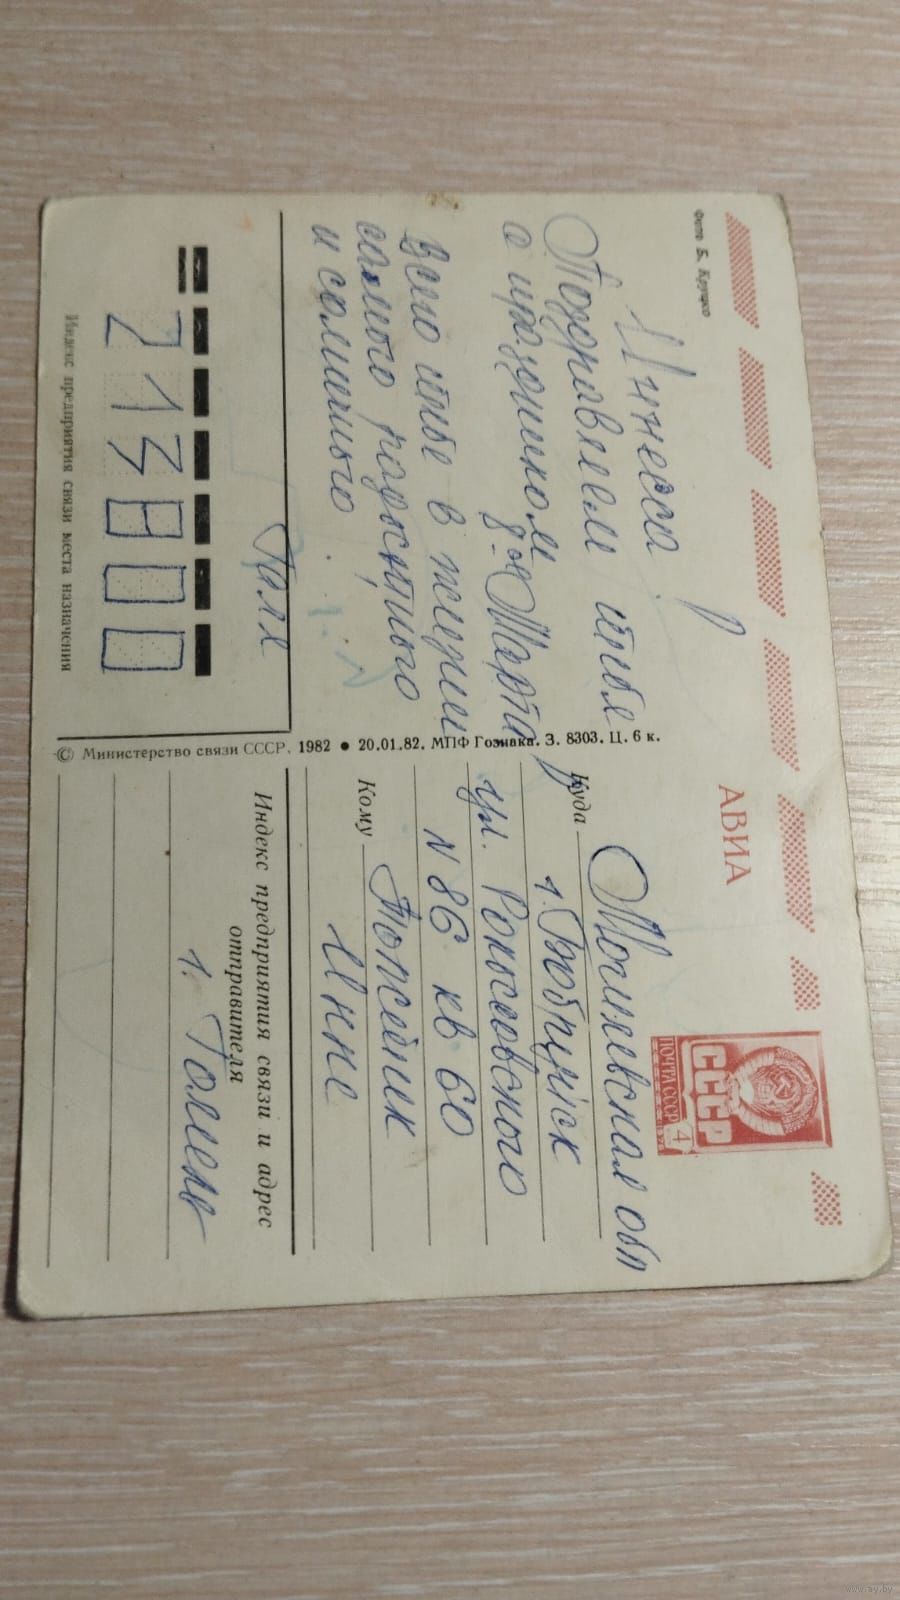 Фото Б. Круцко
АВИА
ПОЧТА СССР
4
СССР
Инесса!
Поздравляем тебя
с праздником
8-ое Марта
Всего тебе в жизни
самого радостного
и солнечного.
Галя
Куда Могилевская обл
г. Бобруйск
ул. Рокоссовского
N 86 кв 60
Кому
Инне
Индекс предприятия связи и адрес
отправителя
г. Гомель
213800
Индекс предприятия связи места назначения
© Министерство связи СССР. 1982 ● 20.01.82. МПФ Гознака. З. 8303. Ц. 6 к.
www.ay.by